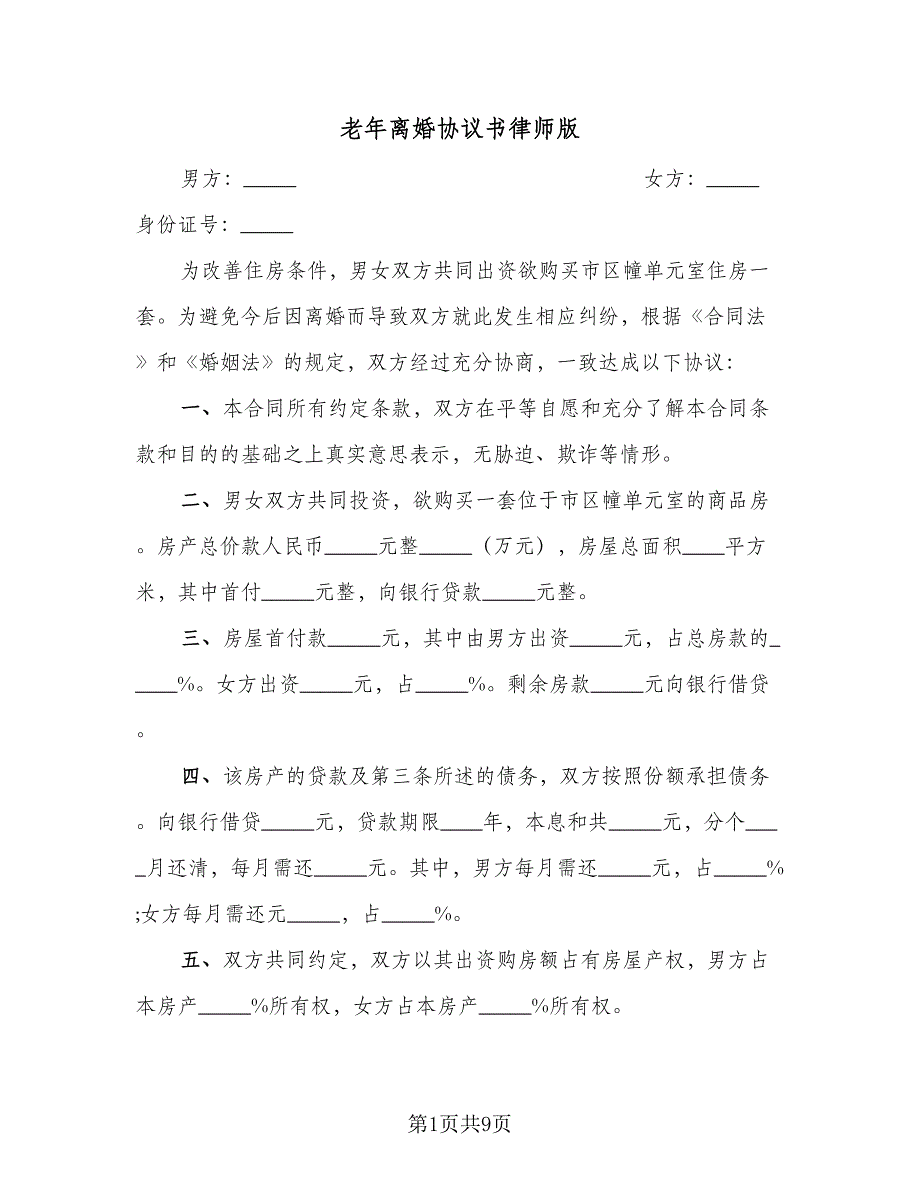 老年离婚协议书律师版
男方：_____ 女方：_____
身份证号：_____
为改善住房条件，男女双方共同出资欲购买市区幢单元室住房一
套。为避免今后因离婚而导致双方就此发生相应纠纷，根据《合同法
》和《婚姻法》的规定，双方经过充分协商，一致达成以下协议：
一、本合同所有约定条款，双方在平等自愿和充分了解本合同条
款和目的的基础之上真实意思表示，无胁迫、欺诈等情形。
二、男女双方共同投资，欲购买一套位于市区幢单元室的商品房
。房产总价款人民币_____元整_____（万元），房屋总面积____平方
米，其中首付_____元整，向银行贷款_____元整。
三、房屋首付款_____元，其中由男方出资_____元，占总房款的_
____%。女方出资_____元，占_____%。剩余房款_____元向银行借贷
。
四、该房产的贷款及第三条所述的债务，双方按照份额承担债务
。向银行借贷_____元，贷款期限____年，本息和共_____元，分个___
_月还清，每月需还_____元。其中，男方每月需还_____元，占_____%
;女方每月需还元_____，占_____%。
五、双方共同约定，双方以其出资购房额占有房屋产权，男方占
本房产_____%所有权，女方占本房产_____%所有权。
第1页共9页